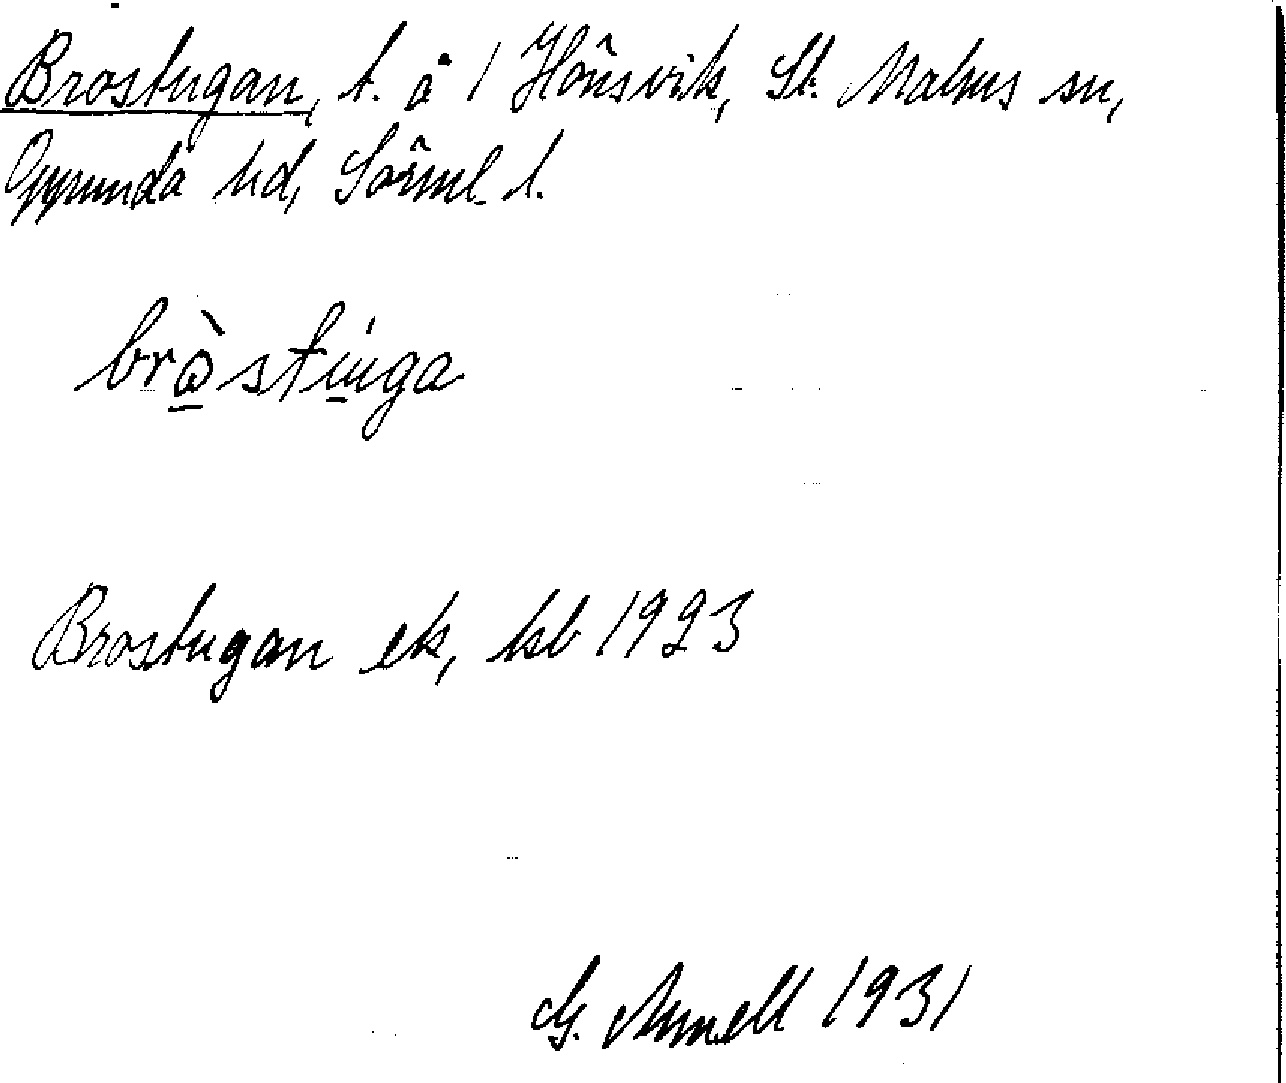 Brostugan, t. å 1 Hönsvik, St. Malms sn,
Oppunda hd, Sörml. l.
brò̱stu̱ga
Brostugan ek, kb 1923
G. Armell 1931